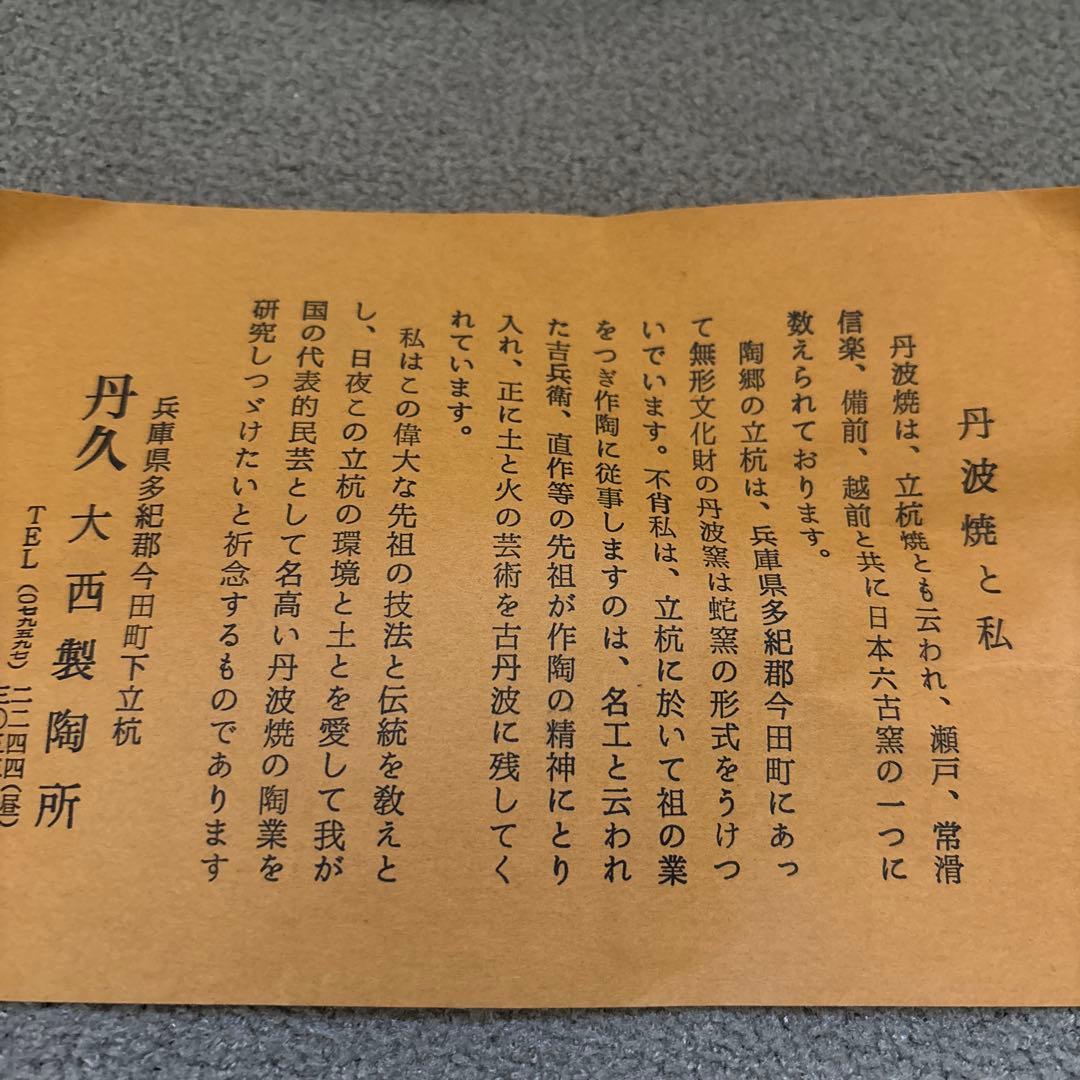 丹波焼と私
丹波焼は、立杭焼とも云われ、瀬戸、常滑
信楽、備前、越前と共に日本六古窯の一つに
数えられております。
陶郷の立杭は、兵庫県多紀郡今田町にあっ
て無形文化財の丹波窯は蛇窯の形式をうけつ
いでいます。不肖私は、立杭に於いて祖の業
をつぎ作陶に従事しますのは、名工と云われ
た吉兵衛、直作等の先祖が作陶の精神にとり
入れ、正に土と火の芸術を古丹波に残してく
れています。
私はこの偉大な先祖の技法と伝統を教えと
し、日夜この立杭の環境と土とを愛して我が
国の代表的民芸として名高い丹波焼の陶業を
研究しつゞけたいと祈念するものであります
兵庫県多紀郡今田町下立杭
丹久大西製陶所
TEL(〇七九五九七)二二四四(昼)